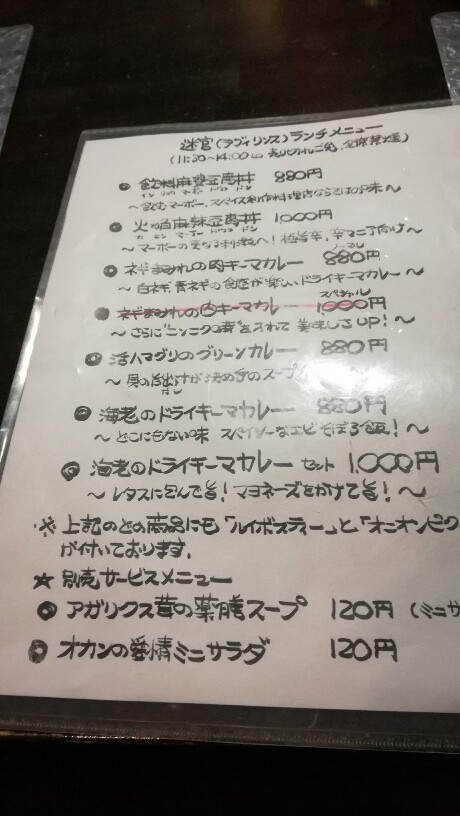 迷宮(ラヴィリンス)ランチメニュー
(11:30~14:00 売り切れご免、全席禁煙)
飲料麻婆豆腐丼 880円
インリョウ マーボー ドウフ ドン
~飲むマーボー。スパイス創作料理店ならではの味~
火焔麻辣豆腐丼 1000円
カエン マーラー ドウフ ドン
~マーボーの更なる刺激へ!極旨辛。辛マニア向け~
ノーマル
ネギまみれの肉キーマカレー 880円
~白ネギ、青ネギの食感が楽しいドライキーマカレー~
スペシャル
ネギまみれの肉キーマカレー 1000円
~さらに"ニンニクの芽"を入れて 美味しさUP!~
活ハマグリのグリーンカレー 880円
~貝の旨出汁が決め手のスープ
ダシ
海老のドライキーマカレー 880円
~どこにもない味 スパイシーなエビそぼろ飯!~
海老のドライキーマカレー セット 1,000円
~レタスに包んで旨!マヨネーズをかけて旨!~
※上記のどの商品にも「ルイボスティー」と「オニオンピク
が付いております。
★別売サービスメニュー
アガリクス茸の薬膳スープ 120円 (ミニサ
オカンの愛情ミニサラダ 120円